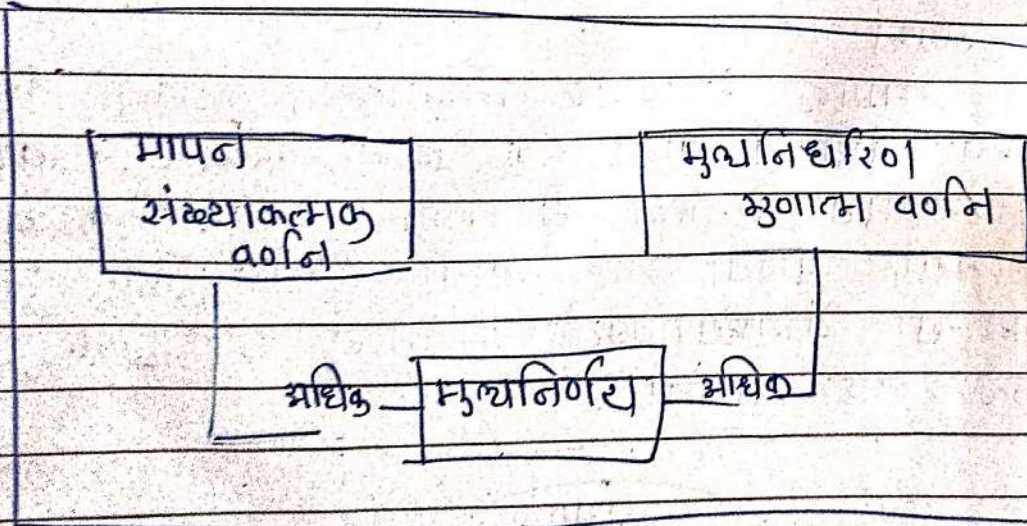 मापन
संख्याकत्मक
वर्णन
मुल्यनिर्धारण
गुणात्म वर्णन
अधिक मुल्यनिर्णय अधिक